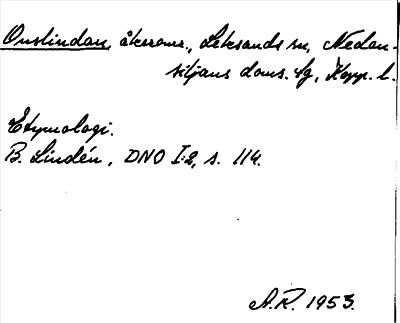 Onslindan, åkernamn, Leksands sn, Nedan-
siljans doms. tg, Kopp. l.
Etymologi.
B. Lindén, DNO I:2, s. 114.
A.R. 1953.